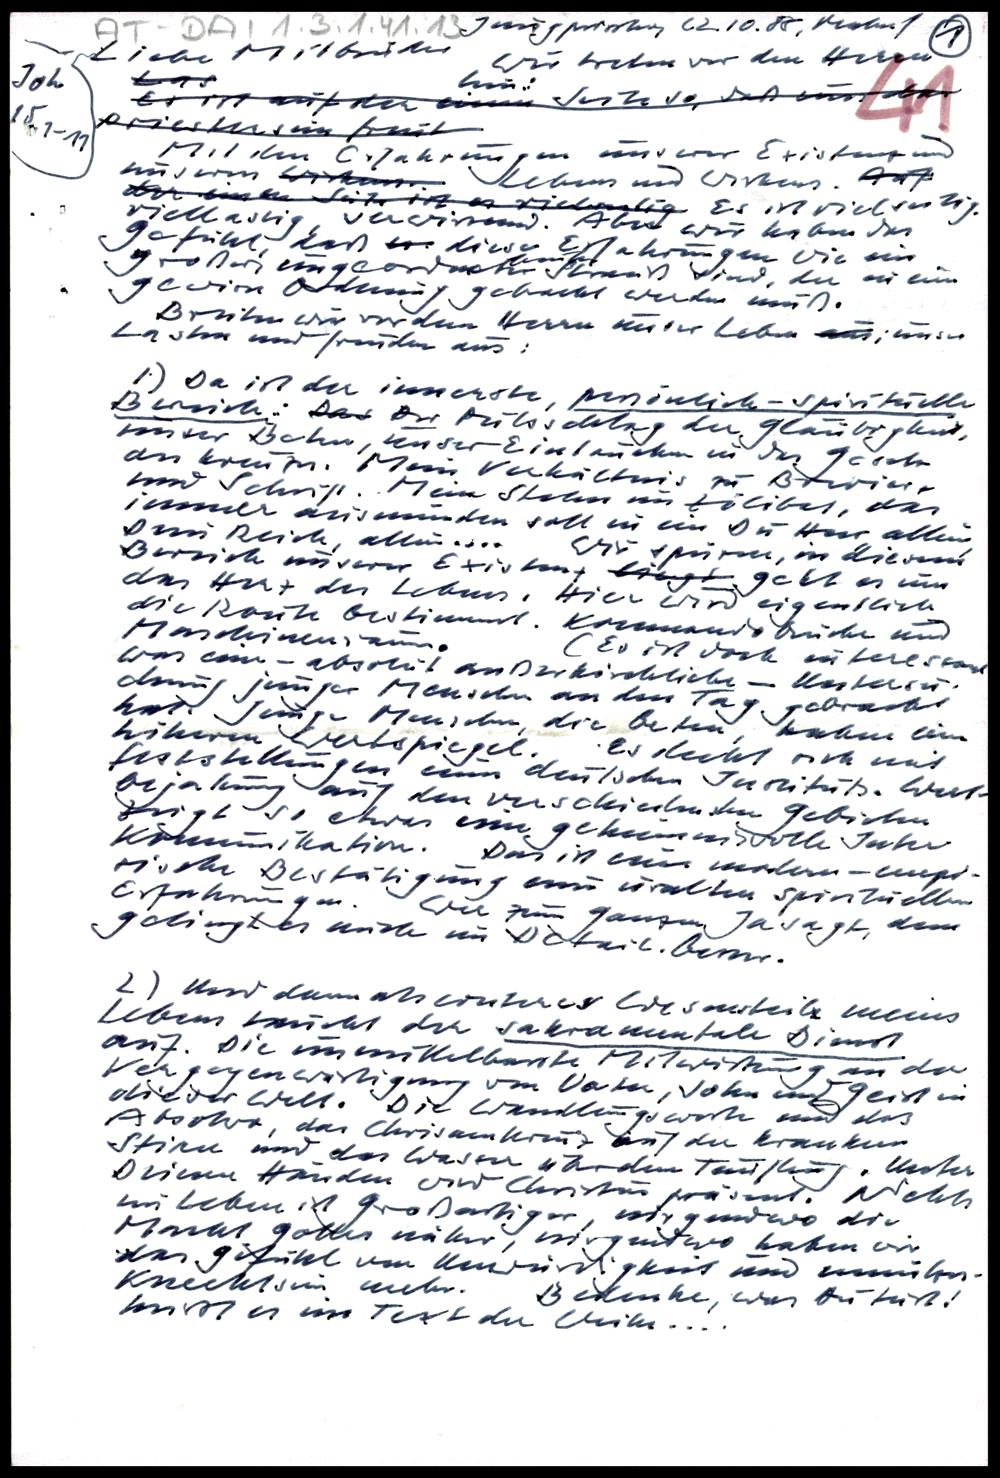 AT-DAI 1.3.1.41.13
Jungpriester 12.10.88,
1
41
Joh
15,1-11
Liebe Mitbrüder
Wir treten vor den Herrn
hin:
Das
Es ist auf der einen Seite so, daß uns das
Priestersein freut
Mit den Erfahrungen unserer Existenz und
unseres Wirkens. Lebens und Wirkens. Auf
der einen Seite ist es vielseitig Es ist vielseitig,
viellastig, verwirrend. Aber wir haben das
Gefühl, daß diese Erfahrungen wie ein
großer ungeordneter Strauß sind, der in eine
gewisse Ordnung gebracht werden muß.
Breiten wir vor dem Herrn unser Leben aus, unsere
Lasten und Freuden aus:
1) Da ist der innerste, persönlich-spirituelle
Bereich: Das Der Pulsschlag der Gläubigkeit,
unser Beten, unser Eintauchen in das Gesetz
des Kreuzes. Mein Verhältnis zu Brevier
und Schrift. Mein Stehen im Zölibat, das
immer ausmünden soll in ein Du Herr allein
Dein Reich, allein.... Wir spüren, in diesem
Bereich unserer Existenz liegt geht es um
das Herz des Lebens. Hier wird eigentlich
die Route bestimmt. Kommandobrücke und
Maschinenraum. (Es ist doch interessant
was eine - absolut außerkirchliche - Untersu-
chung junger Menschen an den Tag gebracht
hat. Junge Menschen, die beten, haben einen
höheren Wertspiegel. Es deckt sich mit
Feststellungen eines deutschen Instituts. Wert-
bejahung auf den verschiedensten Gebieten
zeigt so etwas eine geheimnisvolle Inter
Kommunikation. Das ist eine modern-empi-
rische Bestätigung einer uralten spirituellen
Erfahrungen. Wer zum Ganzen Ja sagt, dem
gelingt es auch im Detail besser.
2) Und dann als weiteres Wesensteil meines
Lebens taucht der sakramentale Dienst
auf. Die unmittelbarste Mitwirkung an der
Vergegenwärtigung von Vater, Sohn und Geist in
dieser Welt. Die Wandlungsworte und das
Absolvo, das Chrisamkreuz auf der kranken
Stirn und das Wasser über dem Täufling. Unter
Deinen Händen wird Christus präsent. Nichts
im Leben ist großartiger, nirgendwo die
Macht Gottes näher, nirgendwo haben wir
das Gefühl von Unwürdigkeit und
Knechtsein mehr. Bedenke, was du tust!
heißt es im Text der Weihe....